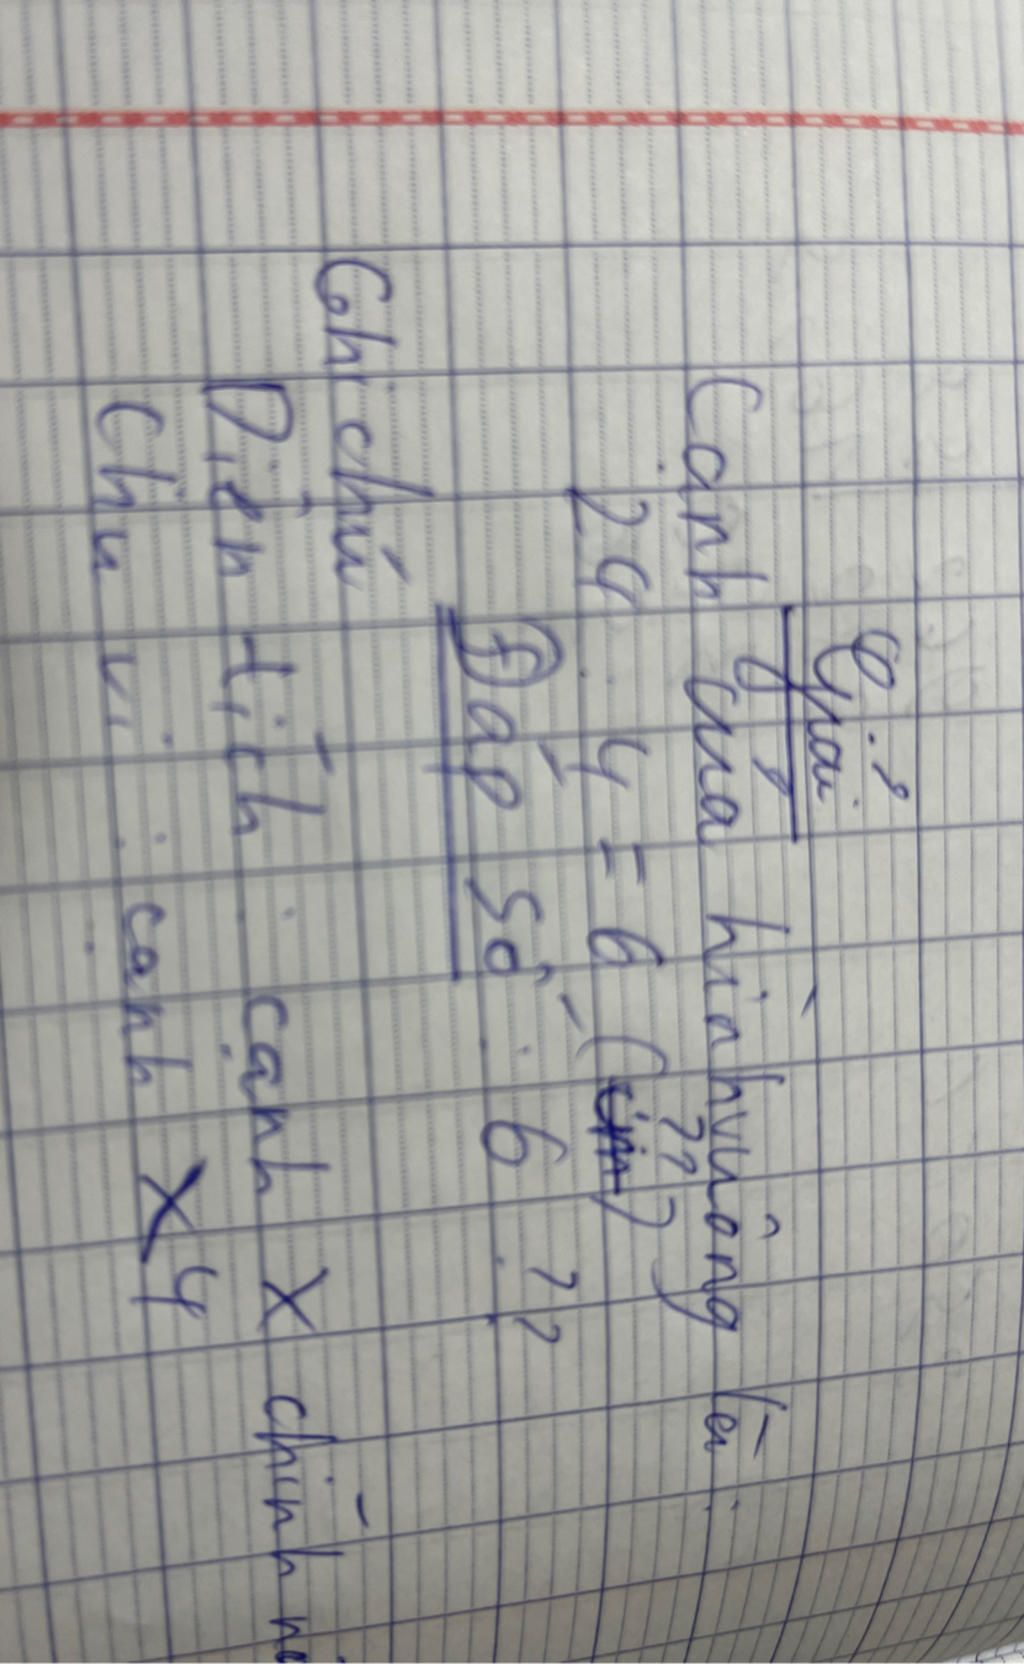 Giải
Cạnh của hình vuông lên :
24 : 4 = 6 (??)
Đáp số : 6 ??
Ghi chú
Diện tích : cạnh x chính nó
Chu vi : cạnh x 4